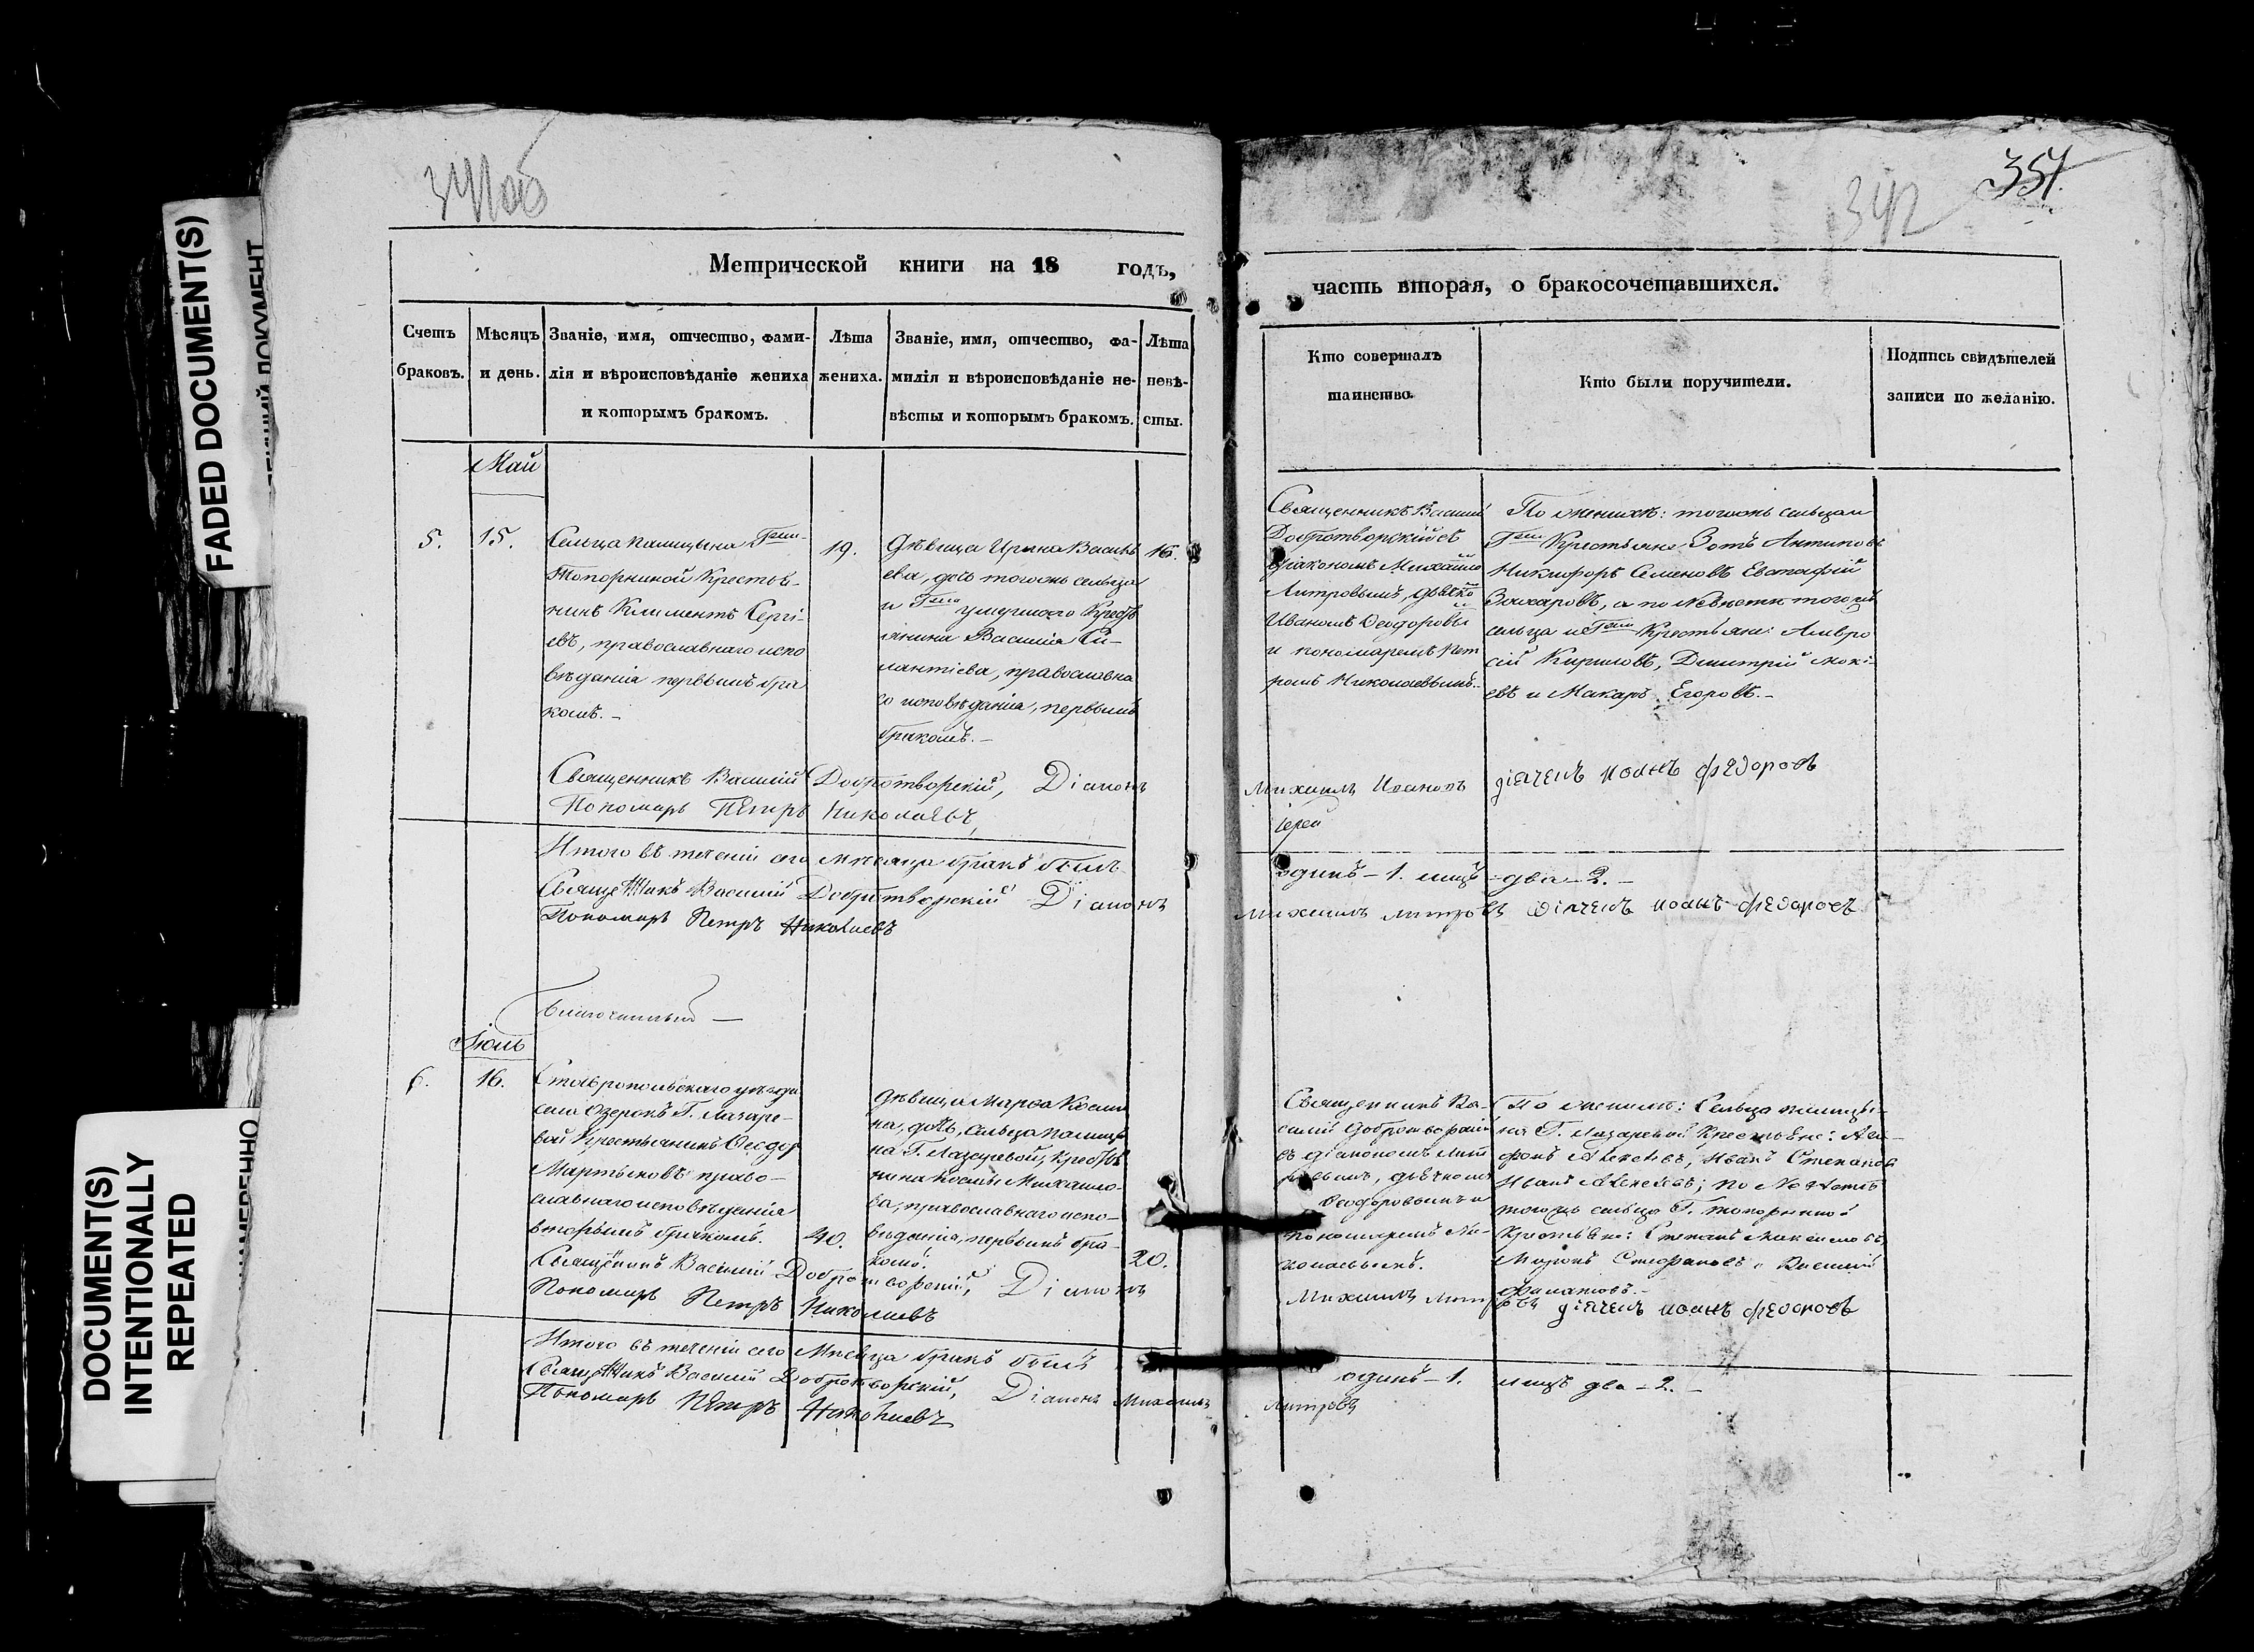 FADED DOCUMENT(S)
DOCUMENT(S)
INTENTIONALLY
REPEATED
341 об
342
351.
Метрической книги на 18 годъ,
часть вторая, о бракосочетавшихся.
Счетъ
браковъ.
Мѣсяцъ
и день.
Званіе, имя, отчество, фами-
лія и вѣроисповѣданіе жениха
и которымъ бракомъ.
Лѣта
жениха.
Званіе, имя, отчество, фа-
милія и вѣроисповѣданіе не-
вѣсты и которымъ бракомъ.
Лѣта
невѣ-
сты.
Кто совершалъ
таинство.
Кто были поручители.
Подпись свидѣтелей
записи по желанію.
Май
5.
15.
Сельца Палицына Г-жи
Топорниной Крестья-
нинъ Климентъ Сергі-
евъ, православнаго испо
вѣданія первымъ бра
комъ.
19.
Дѣвица Ирина Василь
ева, дочь тогожъ сельца
и Г-жи умершаго Крестья
янина Василія Си-
лантіева, православна
го исповѣданія, первымъ
бракомъ.
16.
Священникъ Василій
Добротворскій съ
діакономъ Михаило
Дмитровымъ, дьячко
Иваномъ Ѳеодоровы
и пономаремъ Пет
ромъ Николаевымъ.
По женихѣ: тогожъ сельца и
Г-жи Крестьяне Зотъ Антиповъ
Никифоръ Семеновъ Евстафій
Захаровъ, а по Невѣсти тогожъ
сельца и Г-жи Крестьяне: Амвро
сій Кириловъ, Димитрій Мокі-
евъ и Макаръ Егоровъ.
Священникъ Василій Добротворскій, Діаконъ Михаилъ Ивановъ дiячекъ Иоанъ Федоровъ
Пономарь Петръ Николаевъ,
Итого въ теченіи сего Мѣсяца бракъ былъ одинъ - 1. лицъ - два - 2.
Священникъ Василій Добротворскій Діаконъ Михаилъ Дмитровъ дiячекъ Иоанъ Федоровъ
Пономарь Петръ Николаевъ
Благочинный
Іюль
6.
16.
Ставропольскаго уѣзда
села Озерокъ Г. Лазаре-
вой Крестьянинъ Ѳеодоръ
Мартыновъ право-
славнаго исповѣданія
вторымъ бракомъ.
40.
Дѣвица Марѳа Косми
на, дочь, сельца Палицы
на Г. Лазаревой, Крестья
нина Космы Михаило-
ва, православнаго испо-
вѣданія, первымъ бра-
комъ.
20.
Священникъ Ва-
силій Добротворскій
съ діакономъ Дмит
ровымъ, дьячкомъ
Ѳеодоровымъ и
пономаремъ Ни-
колаевымъ.
По женихѣ: Сельца Палицы-
на Г. Лазаревой Крестьяне: Ага-
фонъ Алексѣевъ, Иванъ Степановъ
Иванъ Алексѣевъ; по Невѣстѣ
тогожъ сельца Г. Топорниной
Крестьяне: Степанъ Максимовъ,
Миронъ Стефановъ и Василій
Филатовъ.
Священникъ Василій Добротворскій, Діаконъ Михаилъ Дмитровъ дiячекъ Иоанъ Федоровъ
Пономарь Петръ Николаевъ
Итого въ теченіи сего Мѣсяца бракъ былъ одинъ - 1. лицъ два - 2.
Священникъ Василій Добротворскій, Діаконъ Михаилъ Дмитровъ
Пономарь Петръ Николаевъ